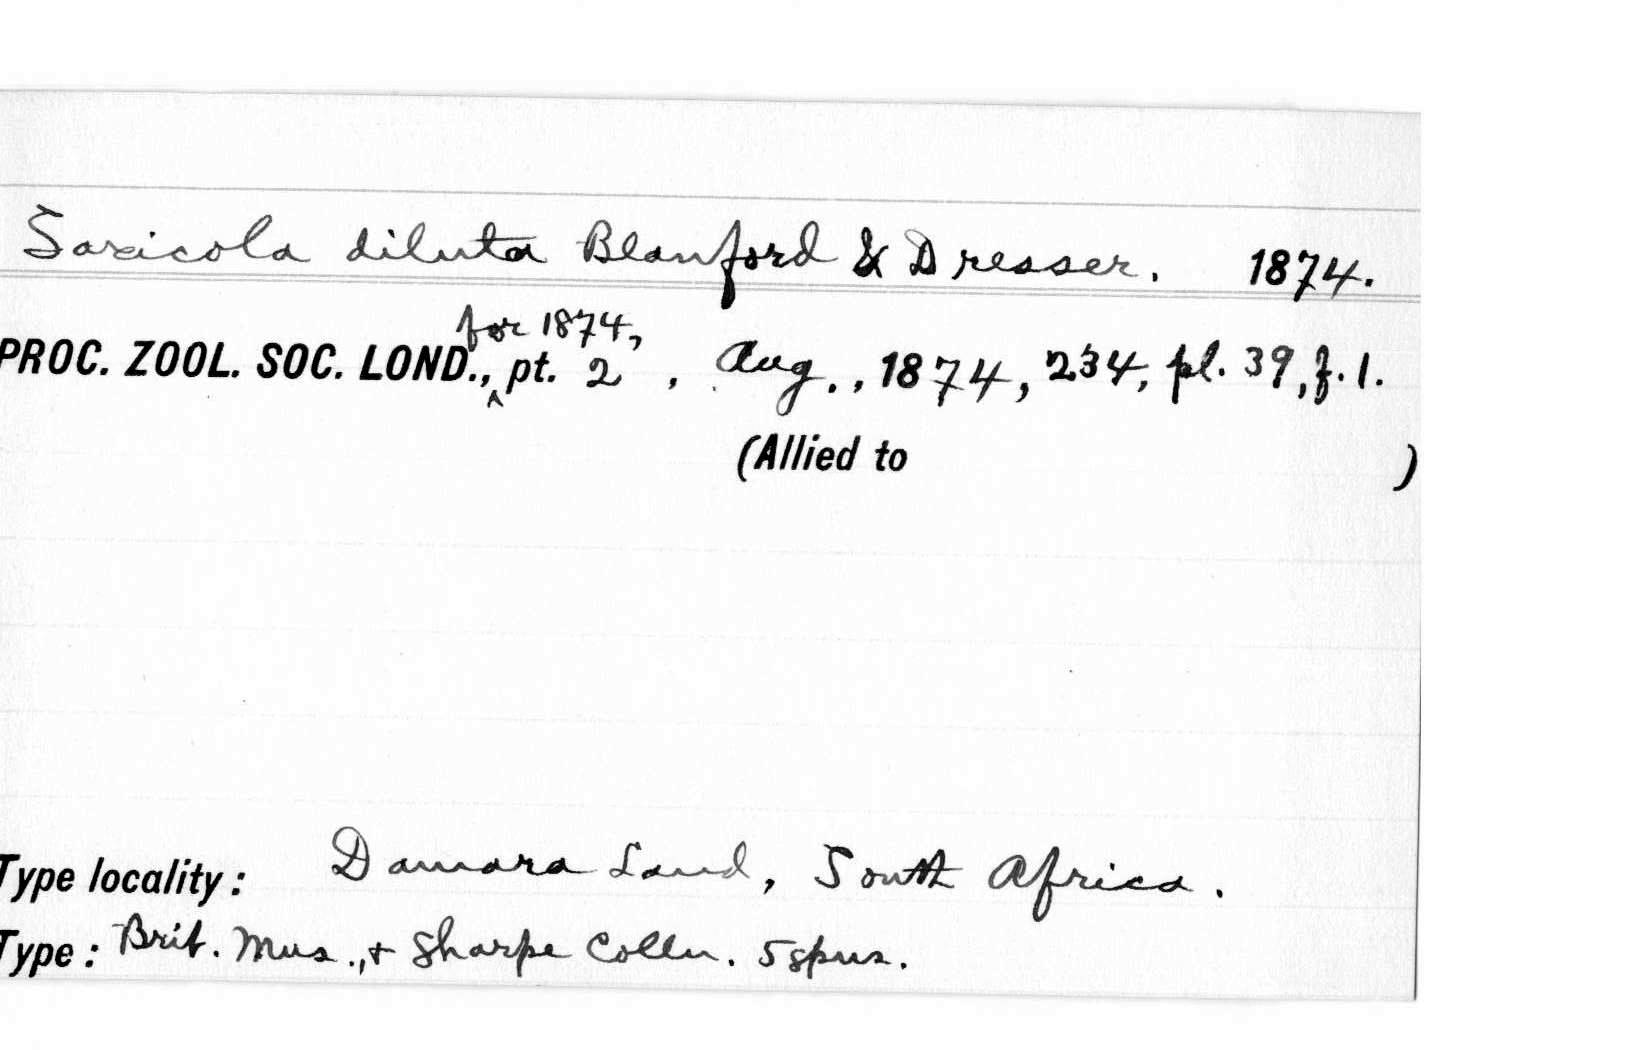 Saxicola diluta Blanford & Dresser. 1874.
for 1874,
PROC. ZOOL. SOC. LOND., ^ pt. 2, Aug., 1874, 234, pl. 39, f. 1.
(Allied to )
Type locality: Damara Land, South Africa.
Type: Brit. Mus., + Sharpe Colln. 5 spms.